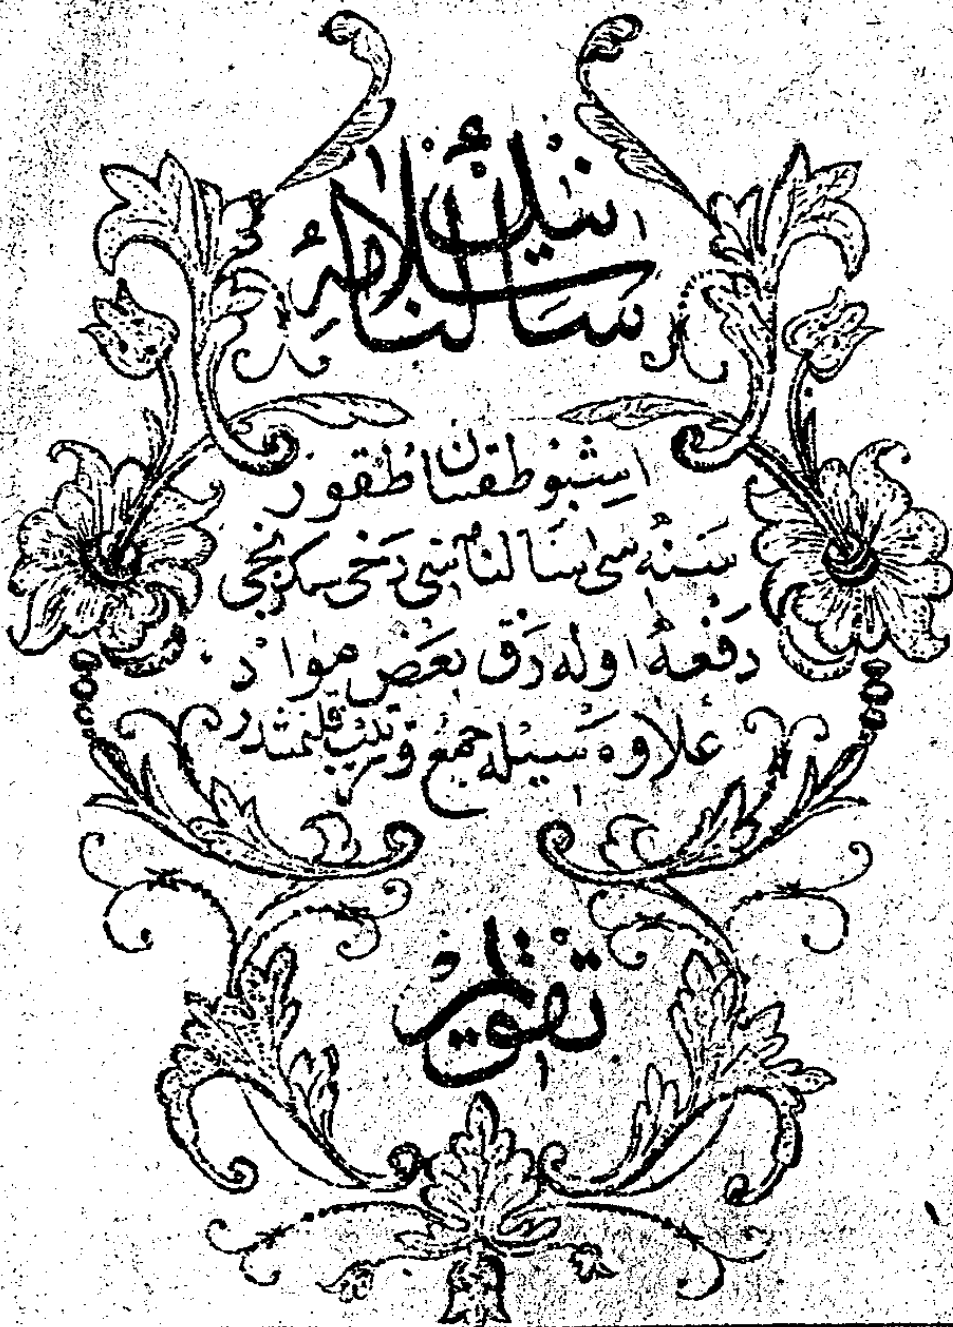 سالنامه
اشبو طقسان طقوز
سنه سی سالنامه سی دخی سکزنجی
دفعه اوله رق بعض مواد
علاوه سیله جمع و ترتیب قلنمشدر